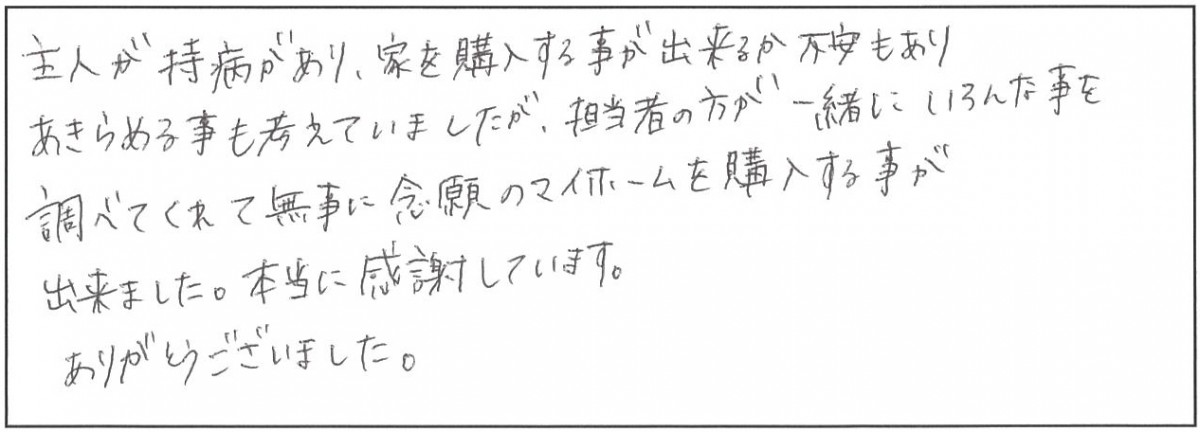 主人が持病があり、家を購入する事が出来るか不安もあり
あきらめる事も考えていましたが、担当者の方が一緒にいろんな事を
調べてくれて無事に念願のマイホームを購入する事が
出来ました。本当に感謝しています。
ありがとうございました。